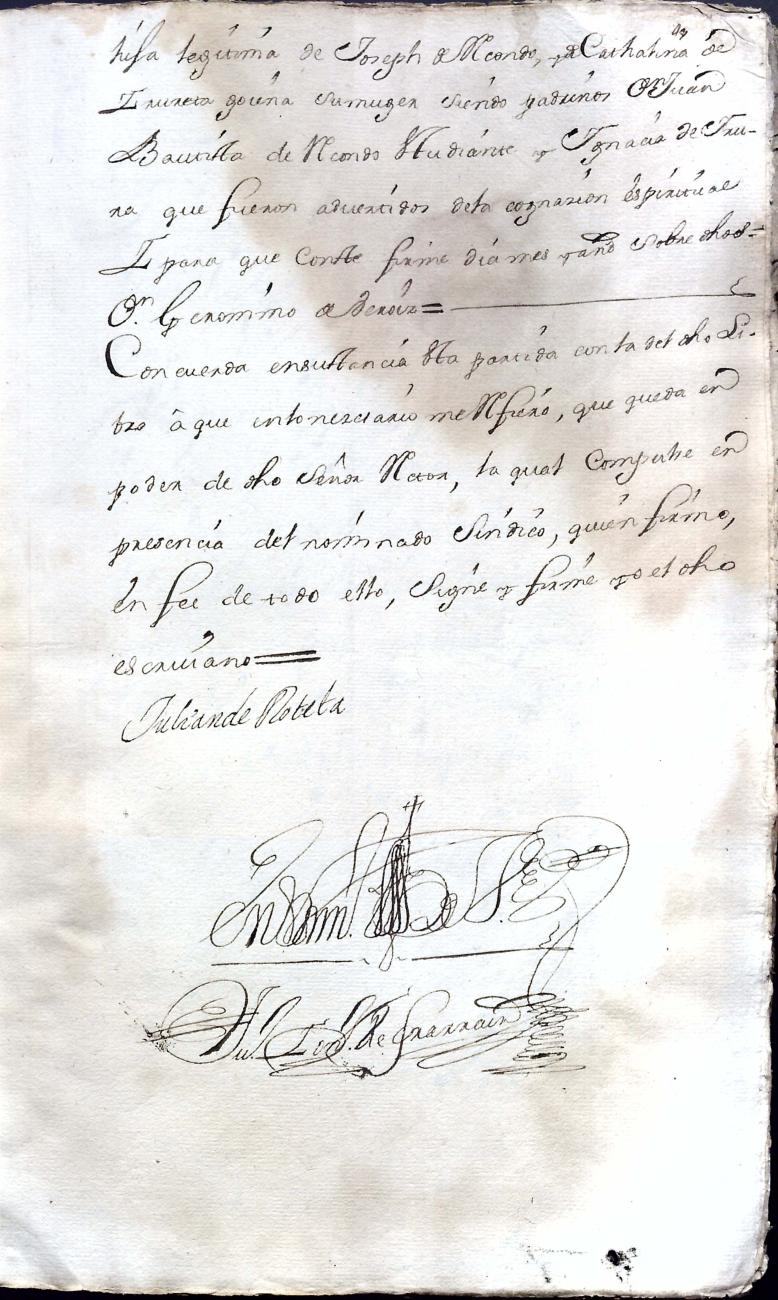 hija legitima de Joseph de Recondo, y de Cathalina de
Irureta goiena su muger siendo padrinos Dn Juan
Bautista de Recondo Estudiante y Ignacia de Iru-
ra que fueron advertidos dela cognazion espiritual
I para que Conste firme dia mes y año Sobre dhos=
Dn. Geronimo de Beroiz=
Concuerda en sustancia Esta partida con la del dho Li-
bro â que en lo nezesario me Refiero, que queda en
poder de dho Señor Retor, la qual Compulse en
presencia del nominado Sindico, quien firmo,
en fee de todo ello, Signe y firme yo el dho
escrivano=
Julian de Roteta
En testim. de V.
Ign. de Larrain